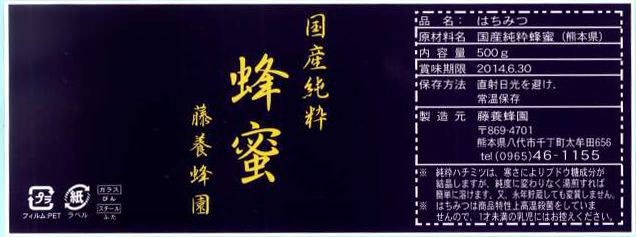 国産純粋
蜂蜜
藤養蜂園
プラ
フィルム:PET
紙
ラベル
ガラス
びん
スチール
ふた
品名: はちみつ
原材料名 国産純粋蜂蜜 (熊本県)
内容量 500g
賞味期限 2014.6.30
保存方法 直射日光を避け、
常温保存
製造元 藤養蜂園
〒869-4701
熊本県八代市千丁町太牟田656
tel (0965) 46-1155
※ 純粋ハチミツは、寒さによりブドウ糖成分が
結晶しますが、純度に変わりなく湯煎すれば
簡単に溶けます。又、永年貯蔵しても変質しません。
※ はちみつは商品特性上高温殺菌をしていま
せんので、1才未満の乳児にはお控えください。